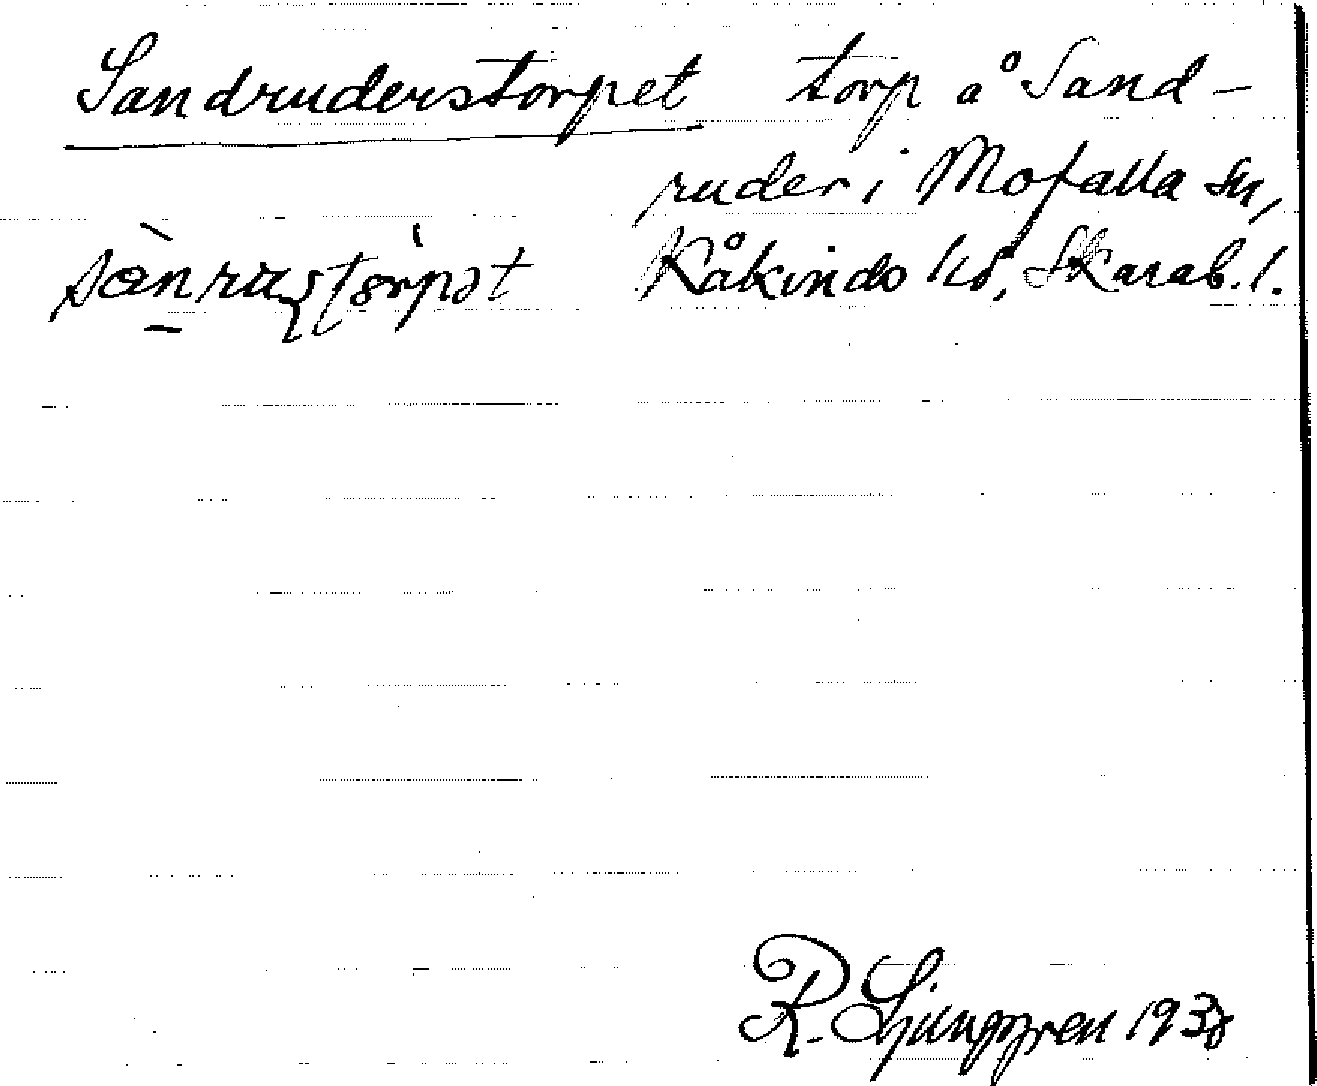 Sandruderstorpet torp å Sand-
ruder i Mofalla sn,
Kåkinds hd, Skarab. l.
R. Ljunggren 1938